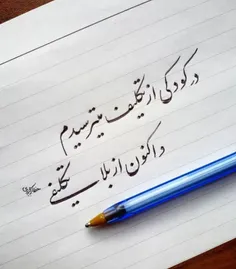 در کودکی از تکلیف میترسیدم
و اکنون از بلاتکلیفی